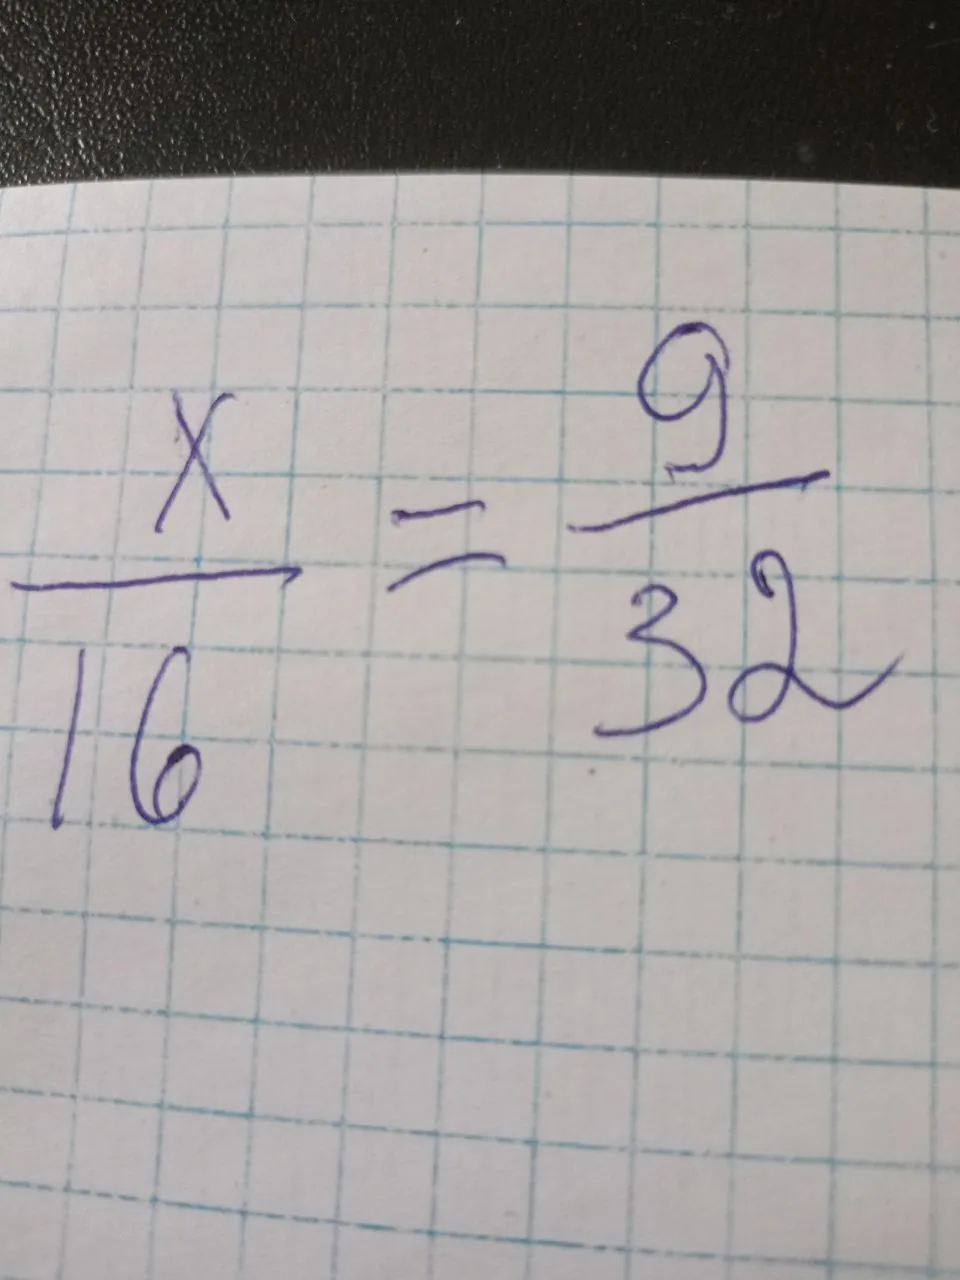 x/16 = 9/32